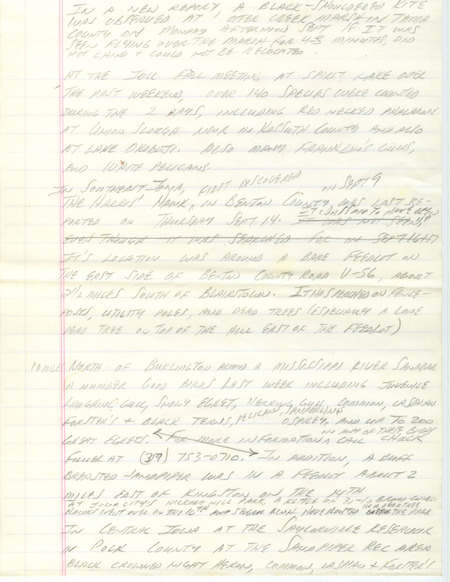 IN A NEW REPORT, A BLACK-SHOULDERED KITE
WAS OBSERVED AT OTTER CREEK MARSH IN TAMA
COUNTY ON MONDAY AFTERNOON SEPT 18 IT WAS
SEEN FLYING OVER THE MARSH FOR 4-5 MINUTES, DID
NOT LAND & COULD NOT BE RELOCATED.
AT THE IOU FALL MEETING AT SPIRIT LAKE OVER
THE PAST WEEKEND, OVER 140 SPECIES WERE COUNTED
DURING THE 2 DAYS, INCLUDING RED NECKED PHALAROPE
AT UNION SLOUGH NWR IN KOSSUTH COUNTY AND ALSO
AT LAKE OKOBOJI. ALSO MANY FRANKLIN'S GULLS,
AND WHITE PELICANS.
IN SOUTHEAST IOWA, FIRST DISCOVERED ON SEPT 9
THE HARRIS' HAWK, IN BENTON COUNTY, WAS LAST RE-
PORTED ON THURSDAY SEPT 14. IT WAS NOT
EVEN THOUGH IT WAS SEARCHED FOR ON SEPT 16+17
IT'S LOCATION WAS AROUND A BARE FEEDLOT ON
THE EAST SIDE OF BENTON COUNTY ROAD V-56, ABOUT
2 1/2 MILES SOUTH OF BLAIRSTOWN. IT HAS PERCHED ON FENCE-
POSTS, UTILITY POLES, AND DEAD TREES (ESPECIALLY A LONE
DEAD TREE ON TOP OF THE HILL EAST OF THE FEEDLOT)
10 MILES NORTH OF BURLINGTON AROUND A MISSISSIPPI RIVER SANDBAR
A NUMBER GOOD BIRDS LAST WEEK INCLUDING JUVENILE
LAUGHING GULL, SNOWY EGRET, HERRING GULL, COMMON, CASPIAN
FORSTER'S & BLACK TERNS, PELICANS, SANDERLINGS OSPREY, AND UP TO 200
GREAT EGRETS. FOR MORE INFORMATION CALL CHUCK
FULLER AT (319) 753-0710. IN ADDITION, A BUFF
BREASTED SANDPIPER WAS IN A FEEDLOT ABOUT 2
MILES EAST OF KINGSTON ON THE 14TH
IN CENTRAL IOWA AT THE SAYLORVILLE RESERVOIR
IN POLK COUNTY AT THE SANDPIPER REC AREA
BLACK CROWNED NIGHT HERON, COMMON, CASPIAN & FORSTER'S